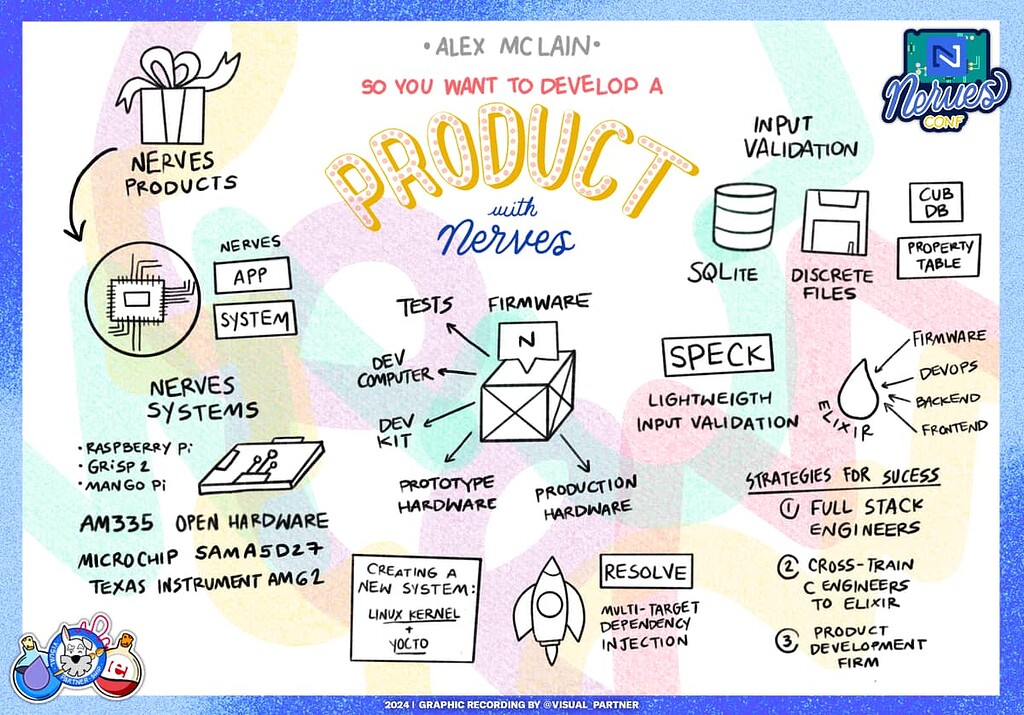 •ALEX MCLAIN•
SO YOU WANT TO DEVELOP A
PRODUCT
with
Nerves
N
Nerves
CONF
NERVES
PRODUCTS
NERVES
APP
SYSTEM
NERVES
SYSTEMS
• RASPBERRY Pi
• GRiSP 2
• MANGO Pi
AM335 OPEN HARDWARE
MICROCHIP SAMA5D27
TEXAS INSTRUMENT AM62
TESTS
FIRMWARE
N
DEV
COMPUTER
DEV
KIT
PROTOTYPE
HARDWARE
PRODUCTION
HARDWARE
CREATING A
NEW SYSTEM:
LINUX KERNEL
+
YOCTO
RESOLVE
MULTI-TARGET
DEPENDENCY
INJECTION
INPUT
VALIDATION
SQLITE
DISCRETE
FILES
CUB
DB
PROPERTY
TABLE
SPECK
LIGHTWEIGTH
INPUT VALIDATION
ELIXIR
FIRMWARE
DEVOPS
BACKEND
FRONTEND
STRATEGIES FOR SUCESS
1 FULL STACK
ENGINEERS
2 CROSS-TRAIN
C ENGINEERS
TO ELIXIR
3 PRODUCT
DEVELOPMENT
FIRM
2024 | GRAPHIC RECORDING BY @VISUAL_PARTNER